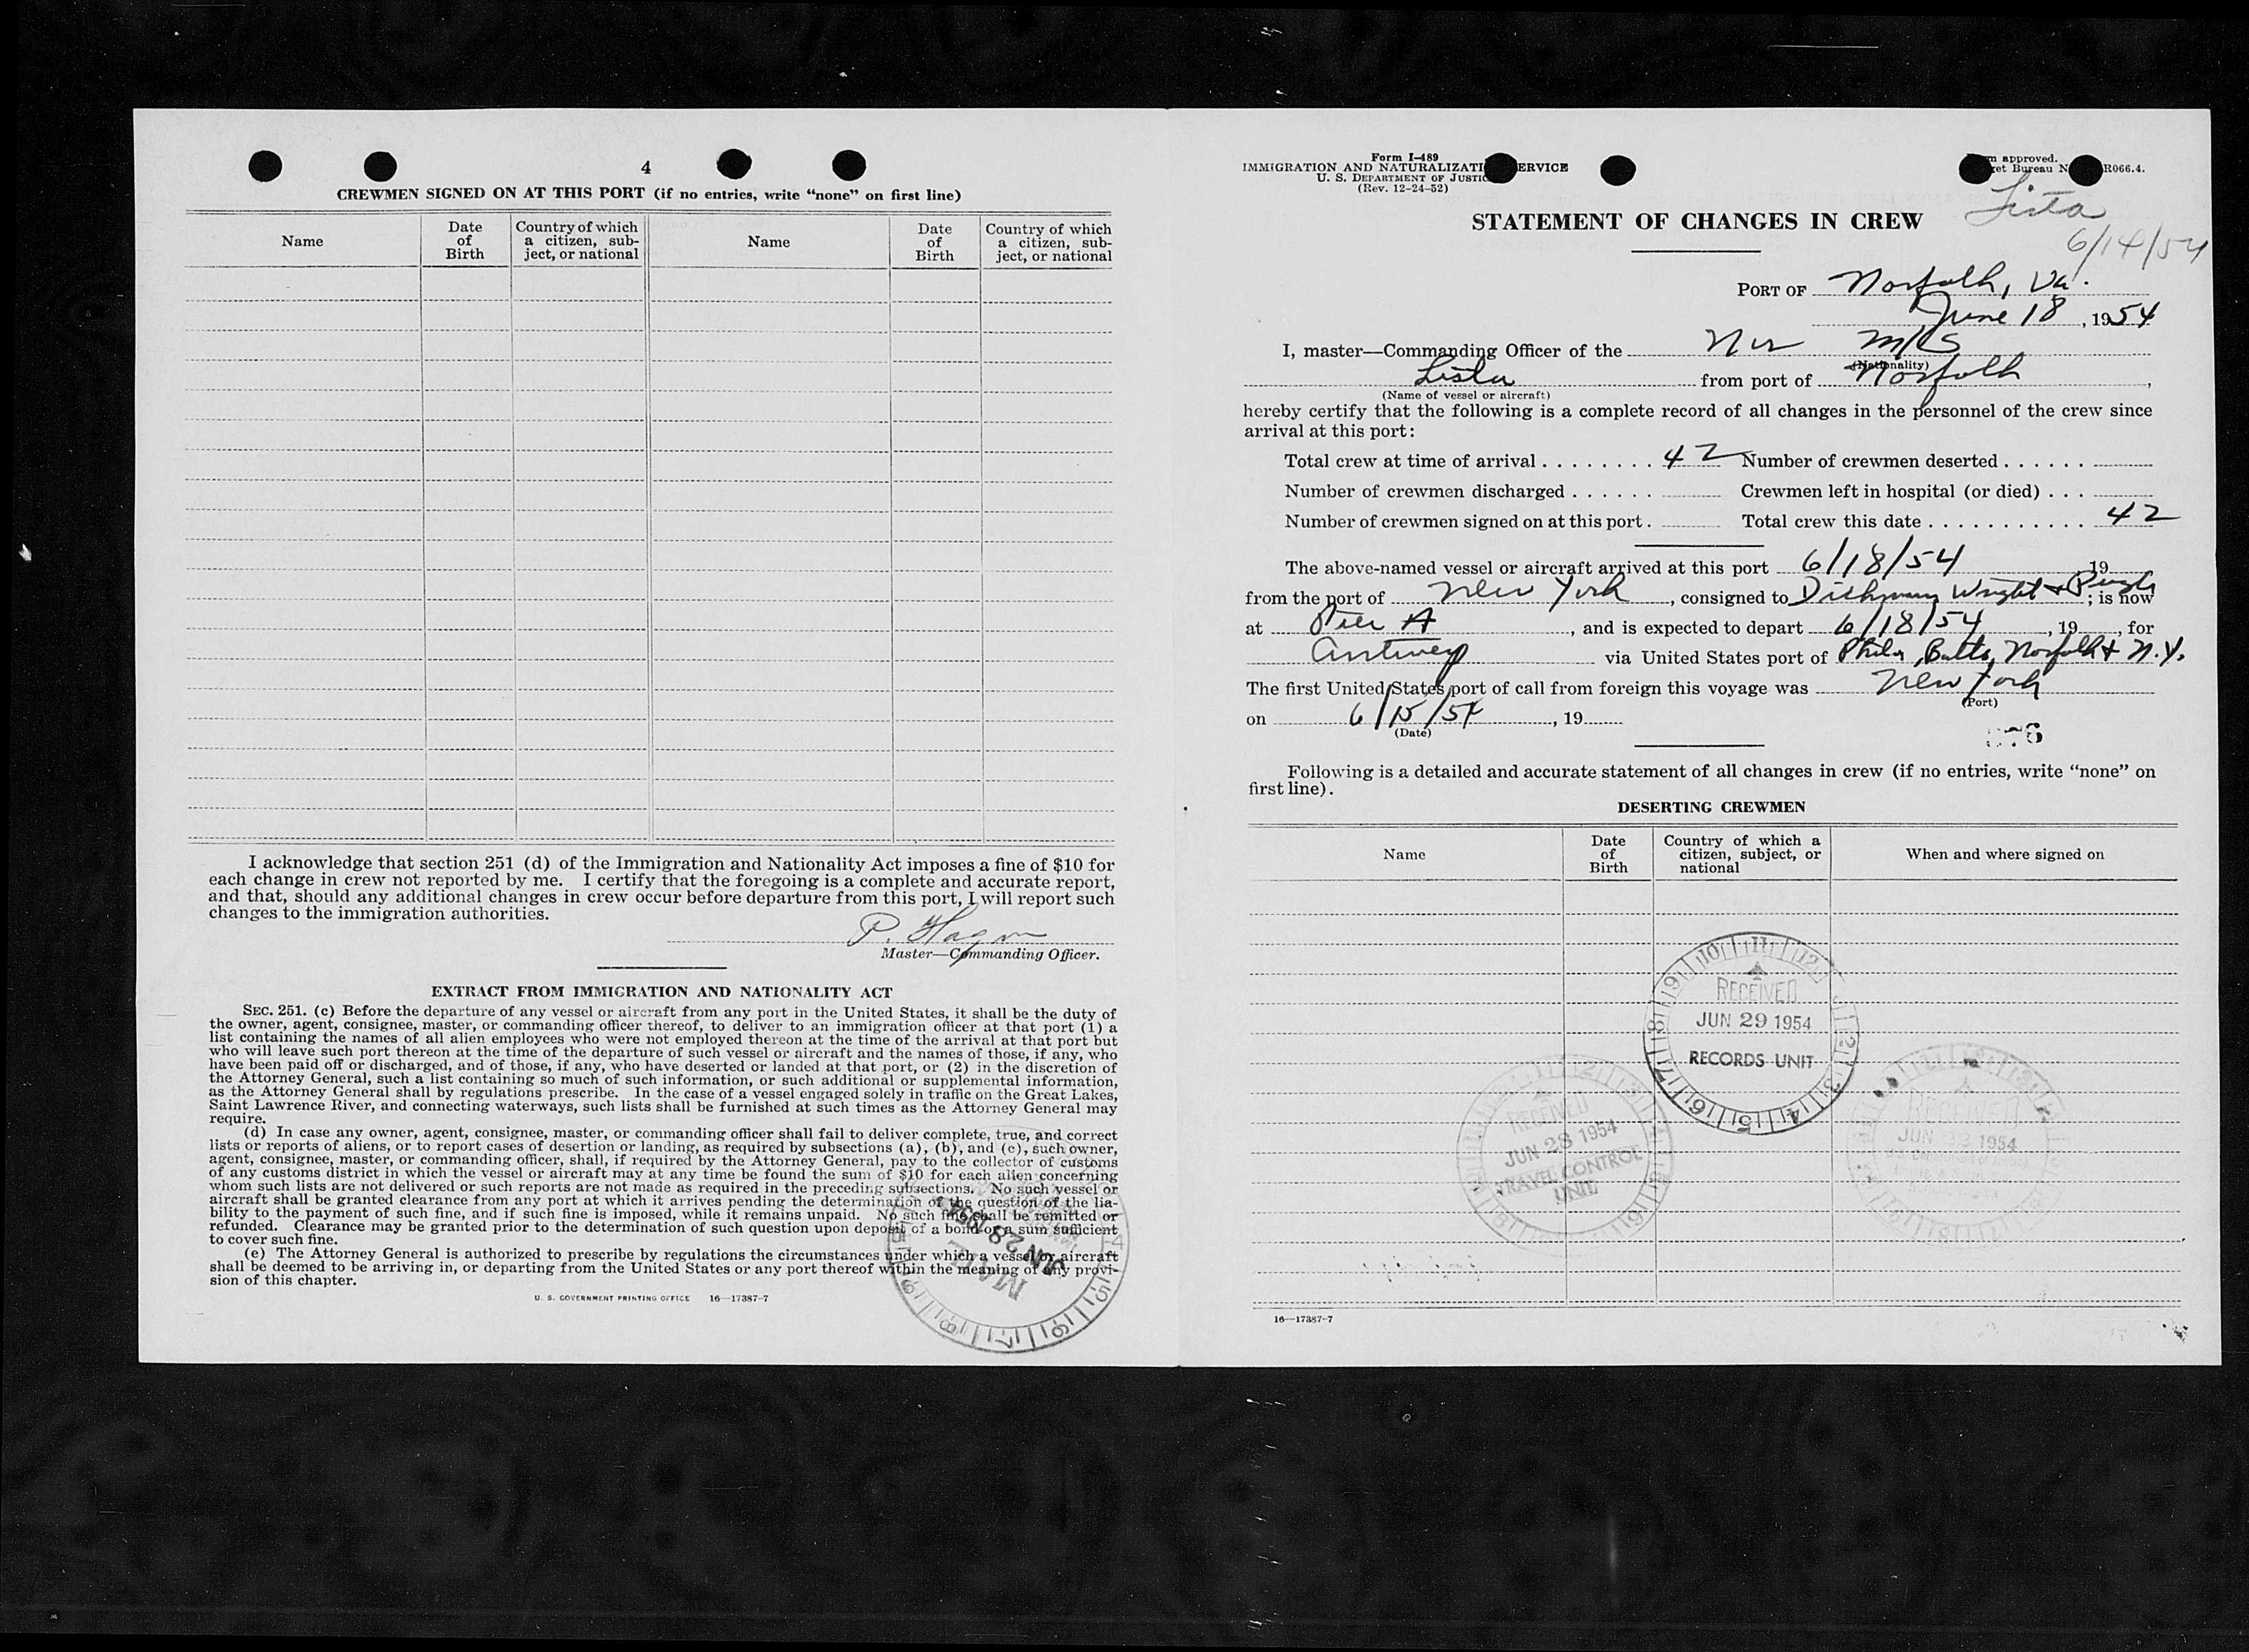 4
CREWMEN SIGNED ON AT THIS PORT (if no entries, write “none” on first line)
Name
Date of Birth
Country of which a citizen, subject, or national
Name
Date of Birth
Country of which a citizen, subject, or national
I acknowledge that section 251 (d) of the Immigration and Nationality Act imposes a fine of $10 for
each change in crew not reported by me. I certify that the foregoing is a complete and accurate report,
and that, should any additional changes in crew occur before departure from this port, I will report such
changes to the immigration authorities.
P. Hagen
Master—Commanding Officer.
EXTRACT FROM IMMIGRATION AND NATIONALITY ACT
SEC. 251. (c) Before the departure of any vessel or aircraft from any port in the United States, it shall be the duty of
the owner, agent, consignee, master, or commanding officer thereof, to deliver to an immigration officer at that port (1) a
list containing the names of all alien employees who were not employed thereon at the time of the arrival at that port but
who will leave such port thereon at the time of the departure of such vessel or aircraft and the names of those, if any, who
have been paid off or discharged, and of those, if any, who have deserted or landed at that port, or (2) in the discretion of
the Attorney General, such a list containing so much of such information, or such additional or supplemental information,
as the Attorney General shall by regulations prescribe. In the case of a vessel engaged solely in traffic on the Great Lakes,
Saint Lawrence River, and connecting waterways, such lists shall be furnished at such times as the Attorney General may
require.
(d) In case any owner, agent, consignee, master, or commanding officer shall fail to deliver complete, true, and correct
lists or reports of aliens, or to report cases of desertion or landing, as required by subsections (a), (b), and (c), such owner,
agent, consignee, master, or commanding officer, shall, if required by the Attorney General, pay to the collector of customs
of any customs district in which the vessel or aircraft may at any time be found the sum of $10 for each alien concerning
whom such lists are not delivered or such reports are not made as required in the preceding subsections. No such vessel or
aircraft shall be granted clearance from any port at which it arrives pending the determination of the question of the lia-
bility to the payment of such fine, and if such fine is imposed, while it remains unpaid. No such fine shall be remitted or
refunded. Clearance may be granted prior to the determination of such question upon deposit of a bond or a sum sufficient
to cover such fine.
(e) The Attorney General is authorized to prescribe by regulations the circumstances under which a vessel or aircraft
shall be deemed to be arriving in, or departing from the United States or any port thereof within the meaning of any provi-
sion of this chapter.
U. S. GOVERNMENT PRINTING OFFICE 16—17387-7
JUN 28 1954
MAIL
Form I-489
IMMIGRATION AND NATURALIZATI ERVICE
U. S. DEPARTMENT OF JUSTIC
(Rev. 12-24-52)
m approved.
et Bureau N R066.4.
Lista
6/14/54
STATEMENT OF CHANGES IN CREW
PORT OF Norfolk, Va.
June 18, 1954
I, master—Commanding Officer of the Nor M/S
(Nationality)
Lista from port of Norfolk,
(Name of vessel or aircraft)
hereby certify that the following is a complete record of all changes in the personnel of the crew since
arrival at this port:
Total crew at time of arrival . . . . . . . . 42 Number of crewmen deserted . . . . . .
Number of crewmen discharged . . . . . . Crewmen left in hospital (or died) . . .
Number of crewmen signed on at this port . Total crew this date . . . . . . . . . . . 42
The above-named vessel or aircraft arrived at this port 6/18/54 19
from the port of New York, consigned to Dichmann Wright & Pugh; is now
at Pier A, and is expected to depart 6/18/54, 19, for
Antwerp via United States port of Phila, Balto, Norfolk & N.Y.
The first United States port of call from foreign this voyage was New York
(Port)
on 6/15/54, 19
(Date)
Following is a detailed and accurate statement of all changes in crew (if no entries, write “none” on
first line).
DESERTING CREWMEN
Name
Date of Birth
Country of which a citizen, subject, or national
When and where signed on
RECEIVED
JUN 29 1954
RECORDS UNIT
RECEIVED
JUN 28 1954
TRAVEL CONTROL
UNIT
RECEIVED
JUN 1954
16—17387-7